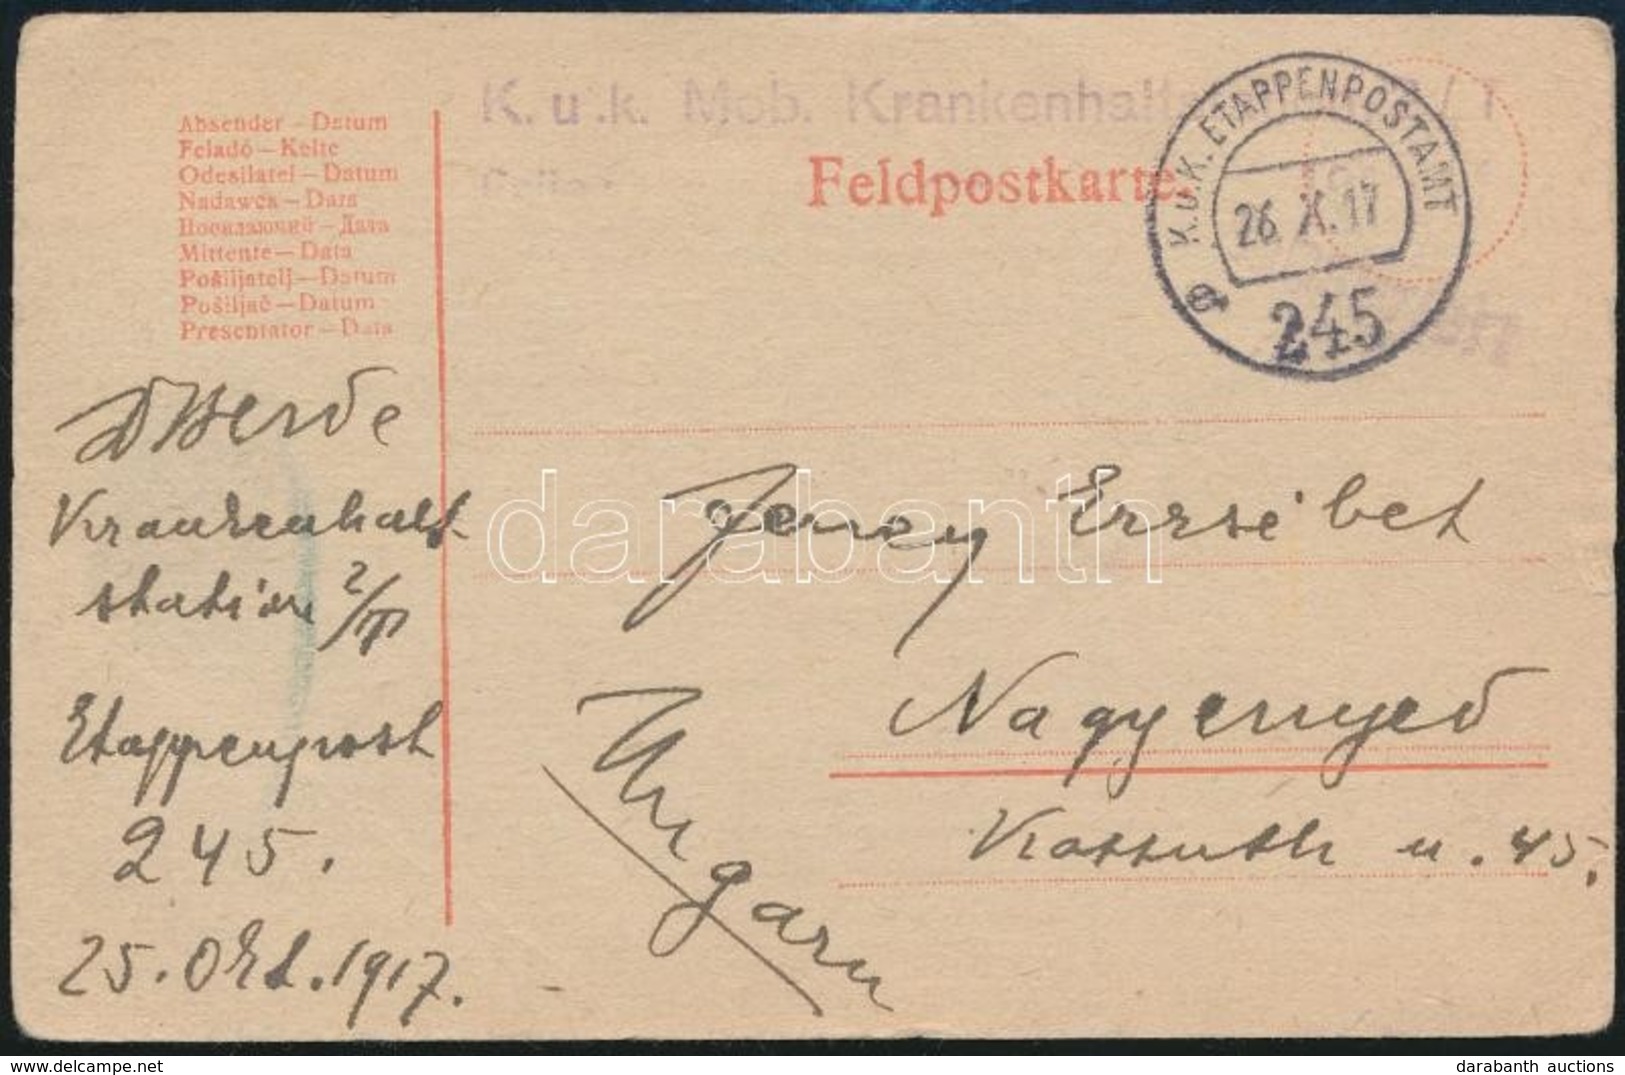 K. u. k. Mob. Krankenhalts
Feldpostkarte.
K.u.K. ETAPPENPOSTAMT
26. X. 17
a
245
Absender – Datum
Feladó – Kelte
Odesílatel – Datum
Nadawca – Data
Посилаючий – Дата
Mittente – Data
Pošiljatelj – Datum
Pošiljač – Datum
Presentator – Data
Krankenhalt
station 2/T
Etappenpost
245.
25. Okt. 1917.
Jeney Erzsébet
Nagyenyed
Kossuth u. 45.
Ungarn
darabanth
darabanth auctions